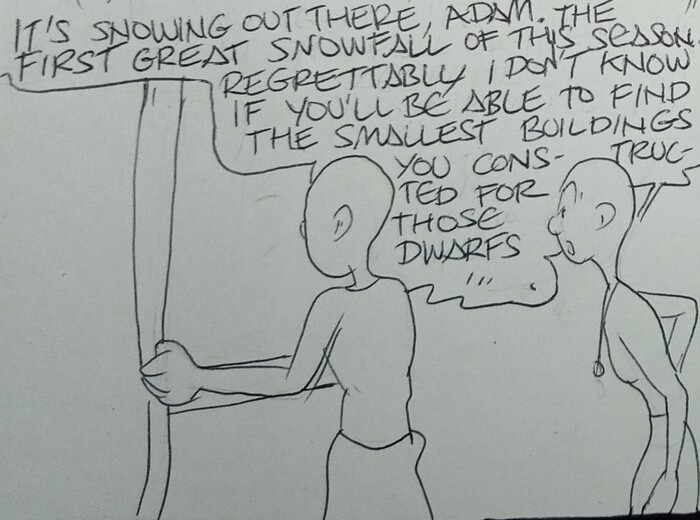 IT'S SNOWING OUT THERE, ADAM. THE
FIRST GREAT SNOWFALL OF THIS SEASON.
REGRETTABLY I DON'T KNOW
IF YOU'LL BE ABLE TO FIND
THE SMALLEST BUILDINGS
YOU CONS- TRUC-
TED FOR
THOSE
DWARFS
...